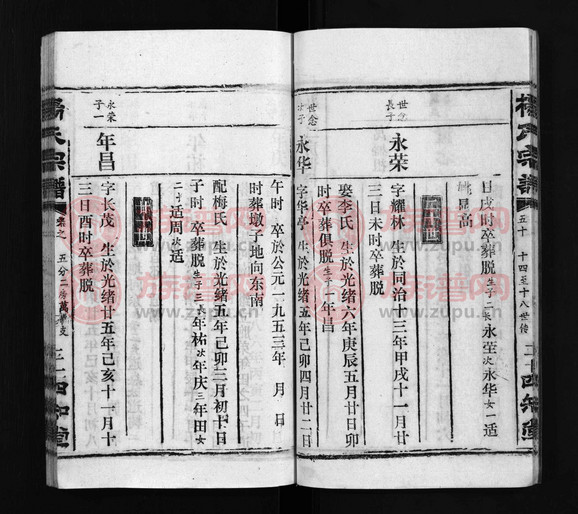 楊氏宗譜
五十
十四至十八世傳
四知堂
日戌时卒葬脱生子二长永荣次永华女一适
姚显高
世念
長子
永荣
字耀林 生於同治十三年甲戌十一月廿
三日未时卒葬脱
娶李氏 生於光绪六年庚辰五月廿日卯
时卒葬俱脱生子一年昌
世念
次子
永华
字华亭 生於光绪五年己卯四月廿二日
午时 卒於公元一九五三年 月 日
时葬墩子地向东南
配梅氏 生於光绪五年己卯三月初十日
子时 卒葬脱生子三长年祐次年庆三年田女
二长适周次适
永荣
子一
年昌
字长茂 生於光绪廿五年己亥十一月十
三日酉时卒葬脱
楊氏宗譜
卷之
五分二房萬
支
四知堂
族谱网
www.zupu.cn